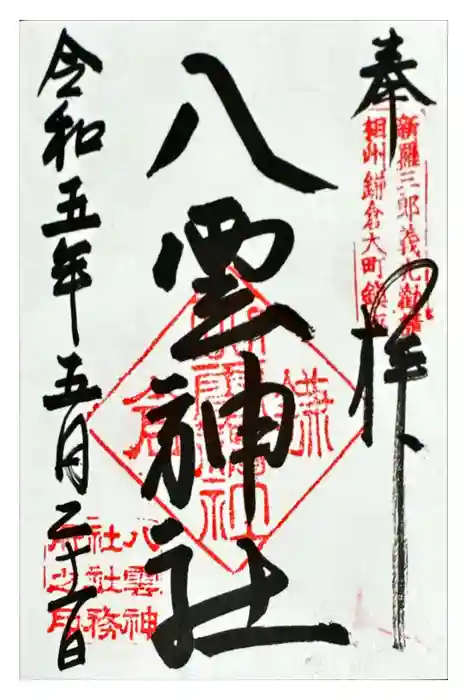 奉拝
新羅三郎義光勧請
相州鎌倉大町鎮座
八雲神社
鎌倉
八雲神
社社務
所之印
令和五年五月二十一日